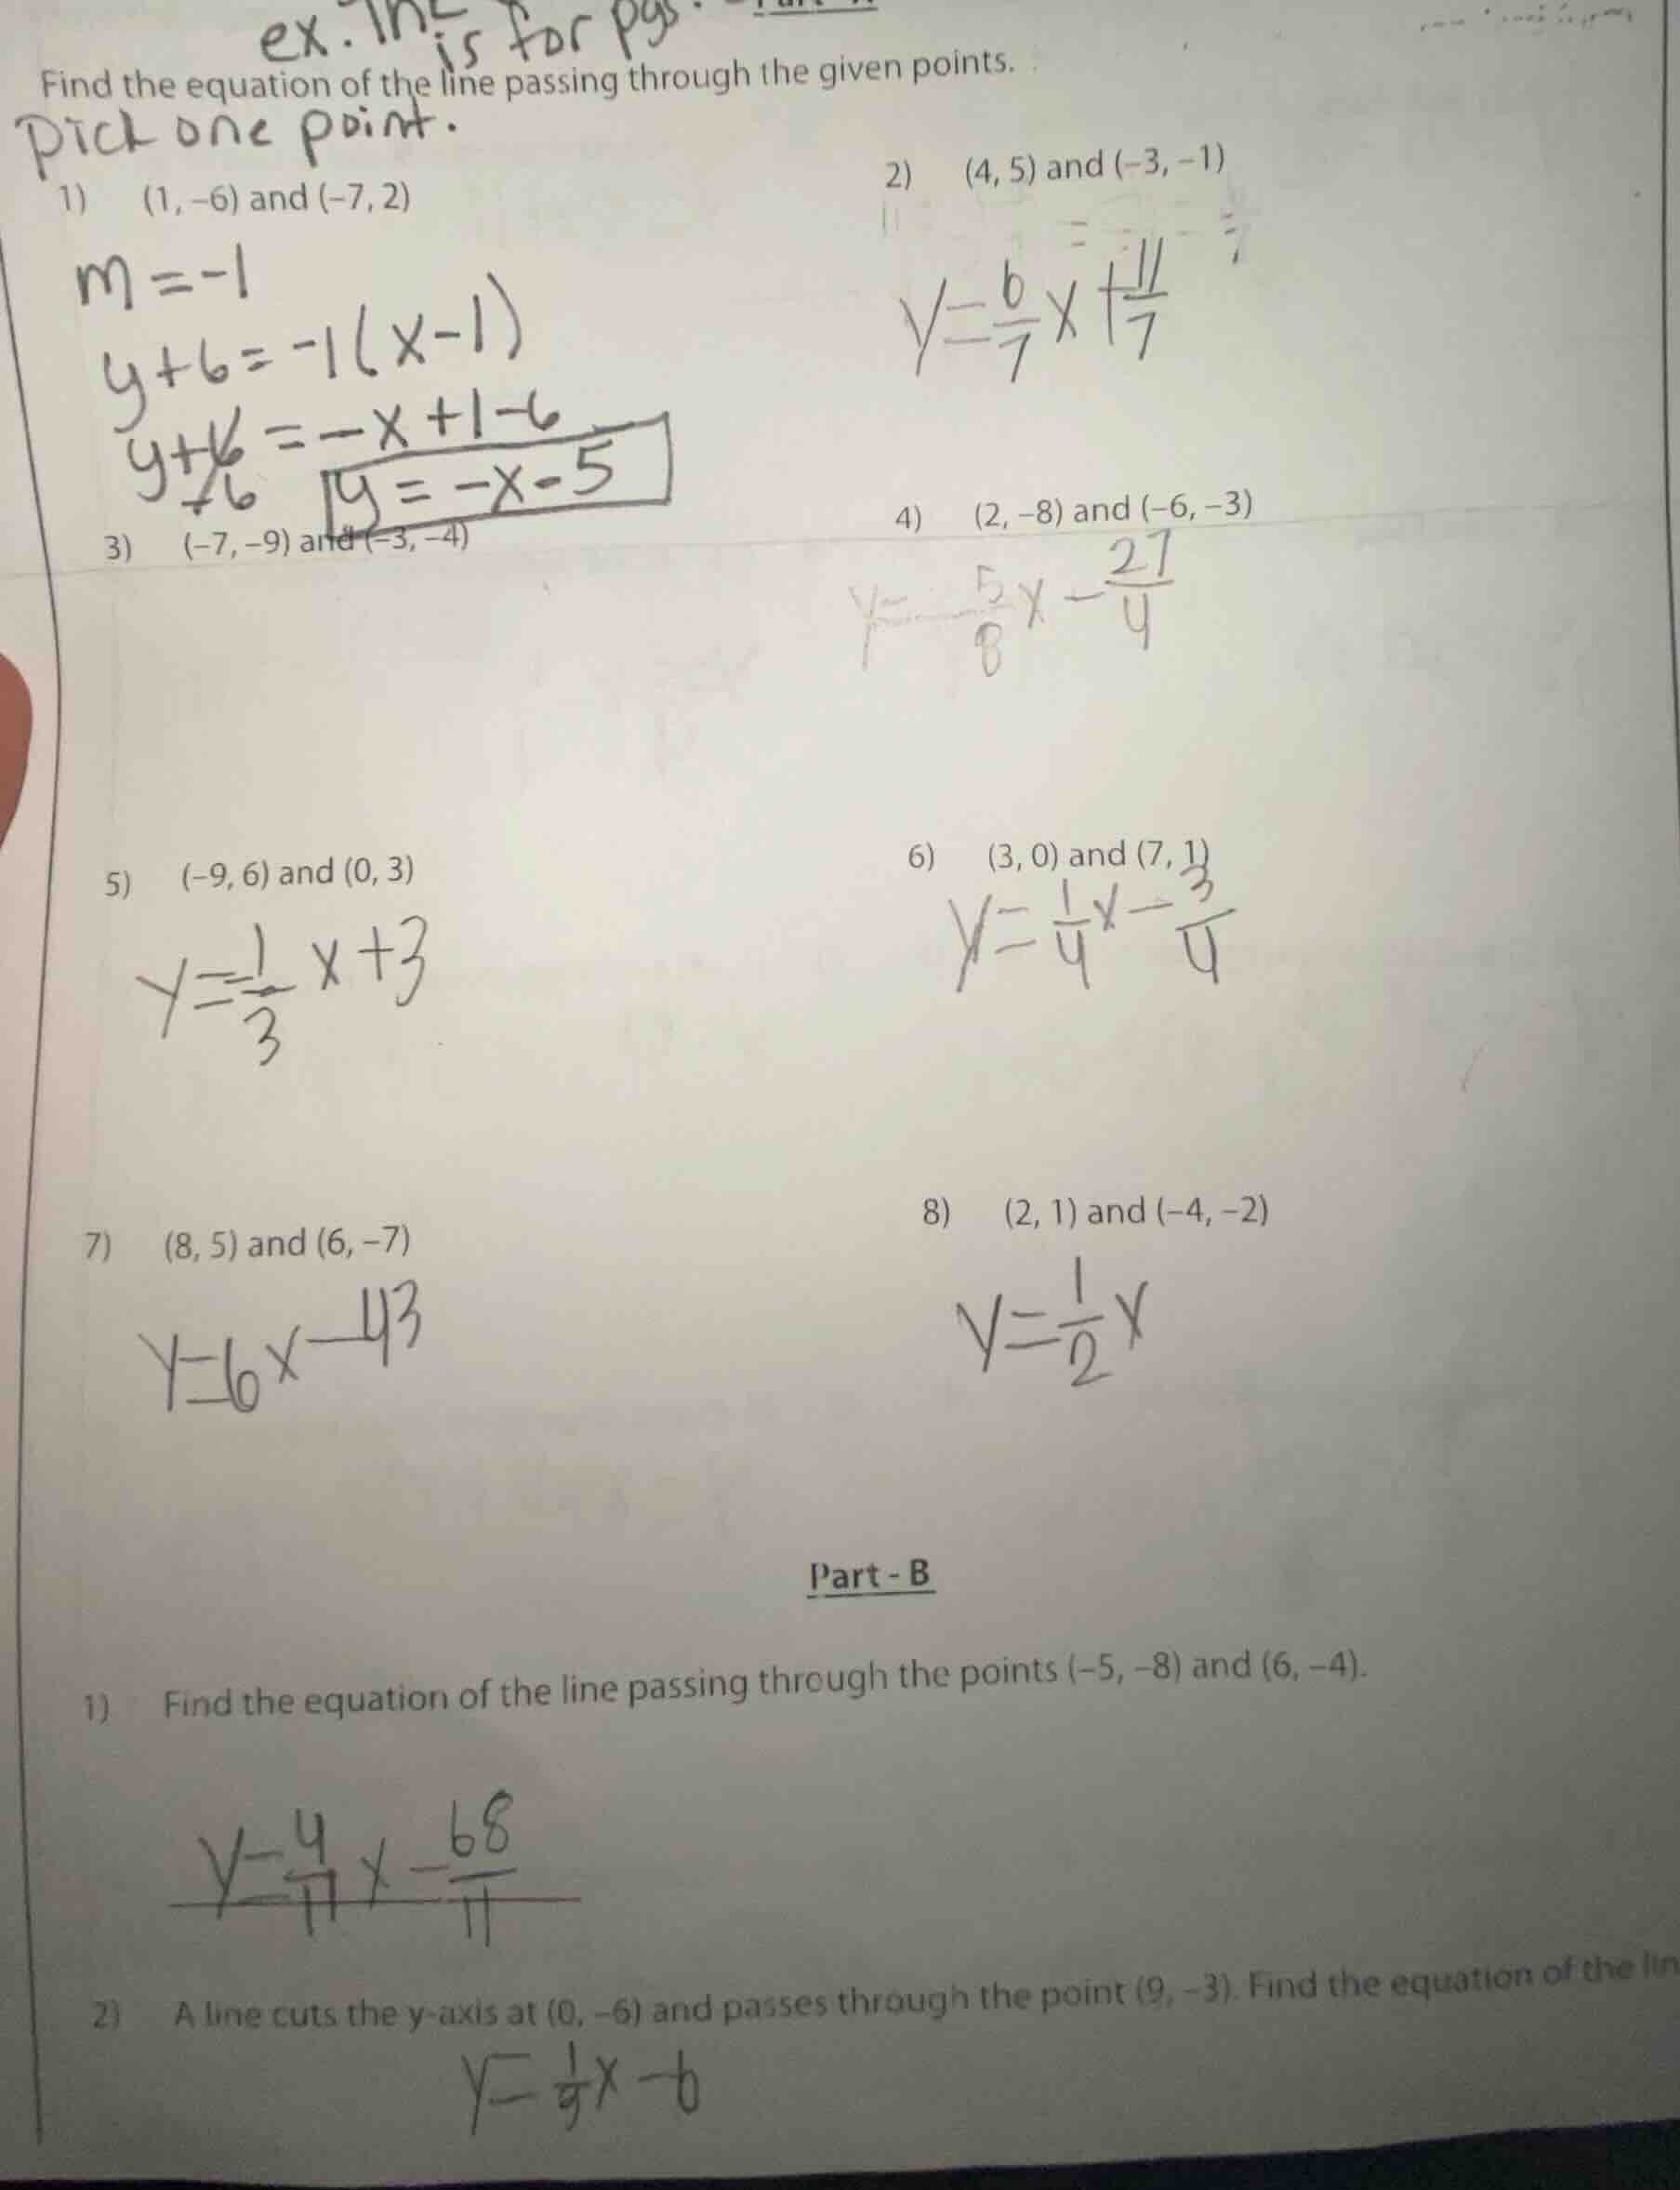 ex. The
is for pgs.
Find the equation of the line passing through the given points.
Pick one point.
1) (1, –6) and (–7, 2)
m = -1
y+6 = -1(x-1)
y+6 = -x+1-6
-6
y = -x-5
2) (4, 5) and (–3, –1)
y = 6/7 x + 11/7
3) (–7, –9) and (–3, –4)
4) (2, –8) and (–6, –3)
y = -5/8 x - 27/4
5) (–9, 6) and (0, 3)
y = -1/3 x + 3
6) (3, 0) and (7, 1)
y = 1/4 x - 3/4
7) (8, 5) and (6, –7)
y = 6x - 43
8) (2, 1) and (–4, –2)
y = 1/2 x
Part - B
1) Find the equation of the line passing through the points (–5, –8) and (6, –4).
y = 4/11 x - 68/11
2) A line cuts the y-axis at (0, –6) and passes through the point (9, –3). Find the equation of the lin
y = 1/9 x - 6